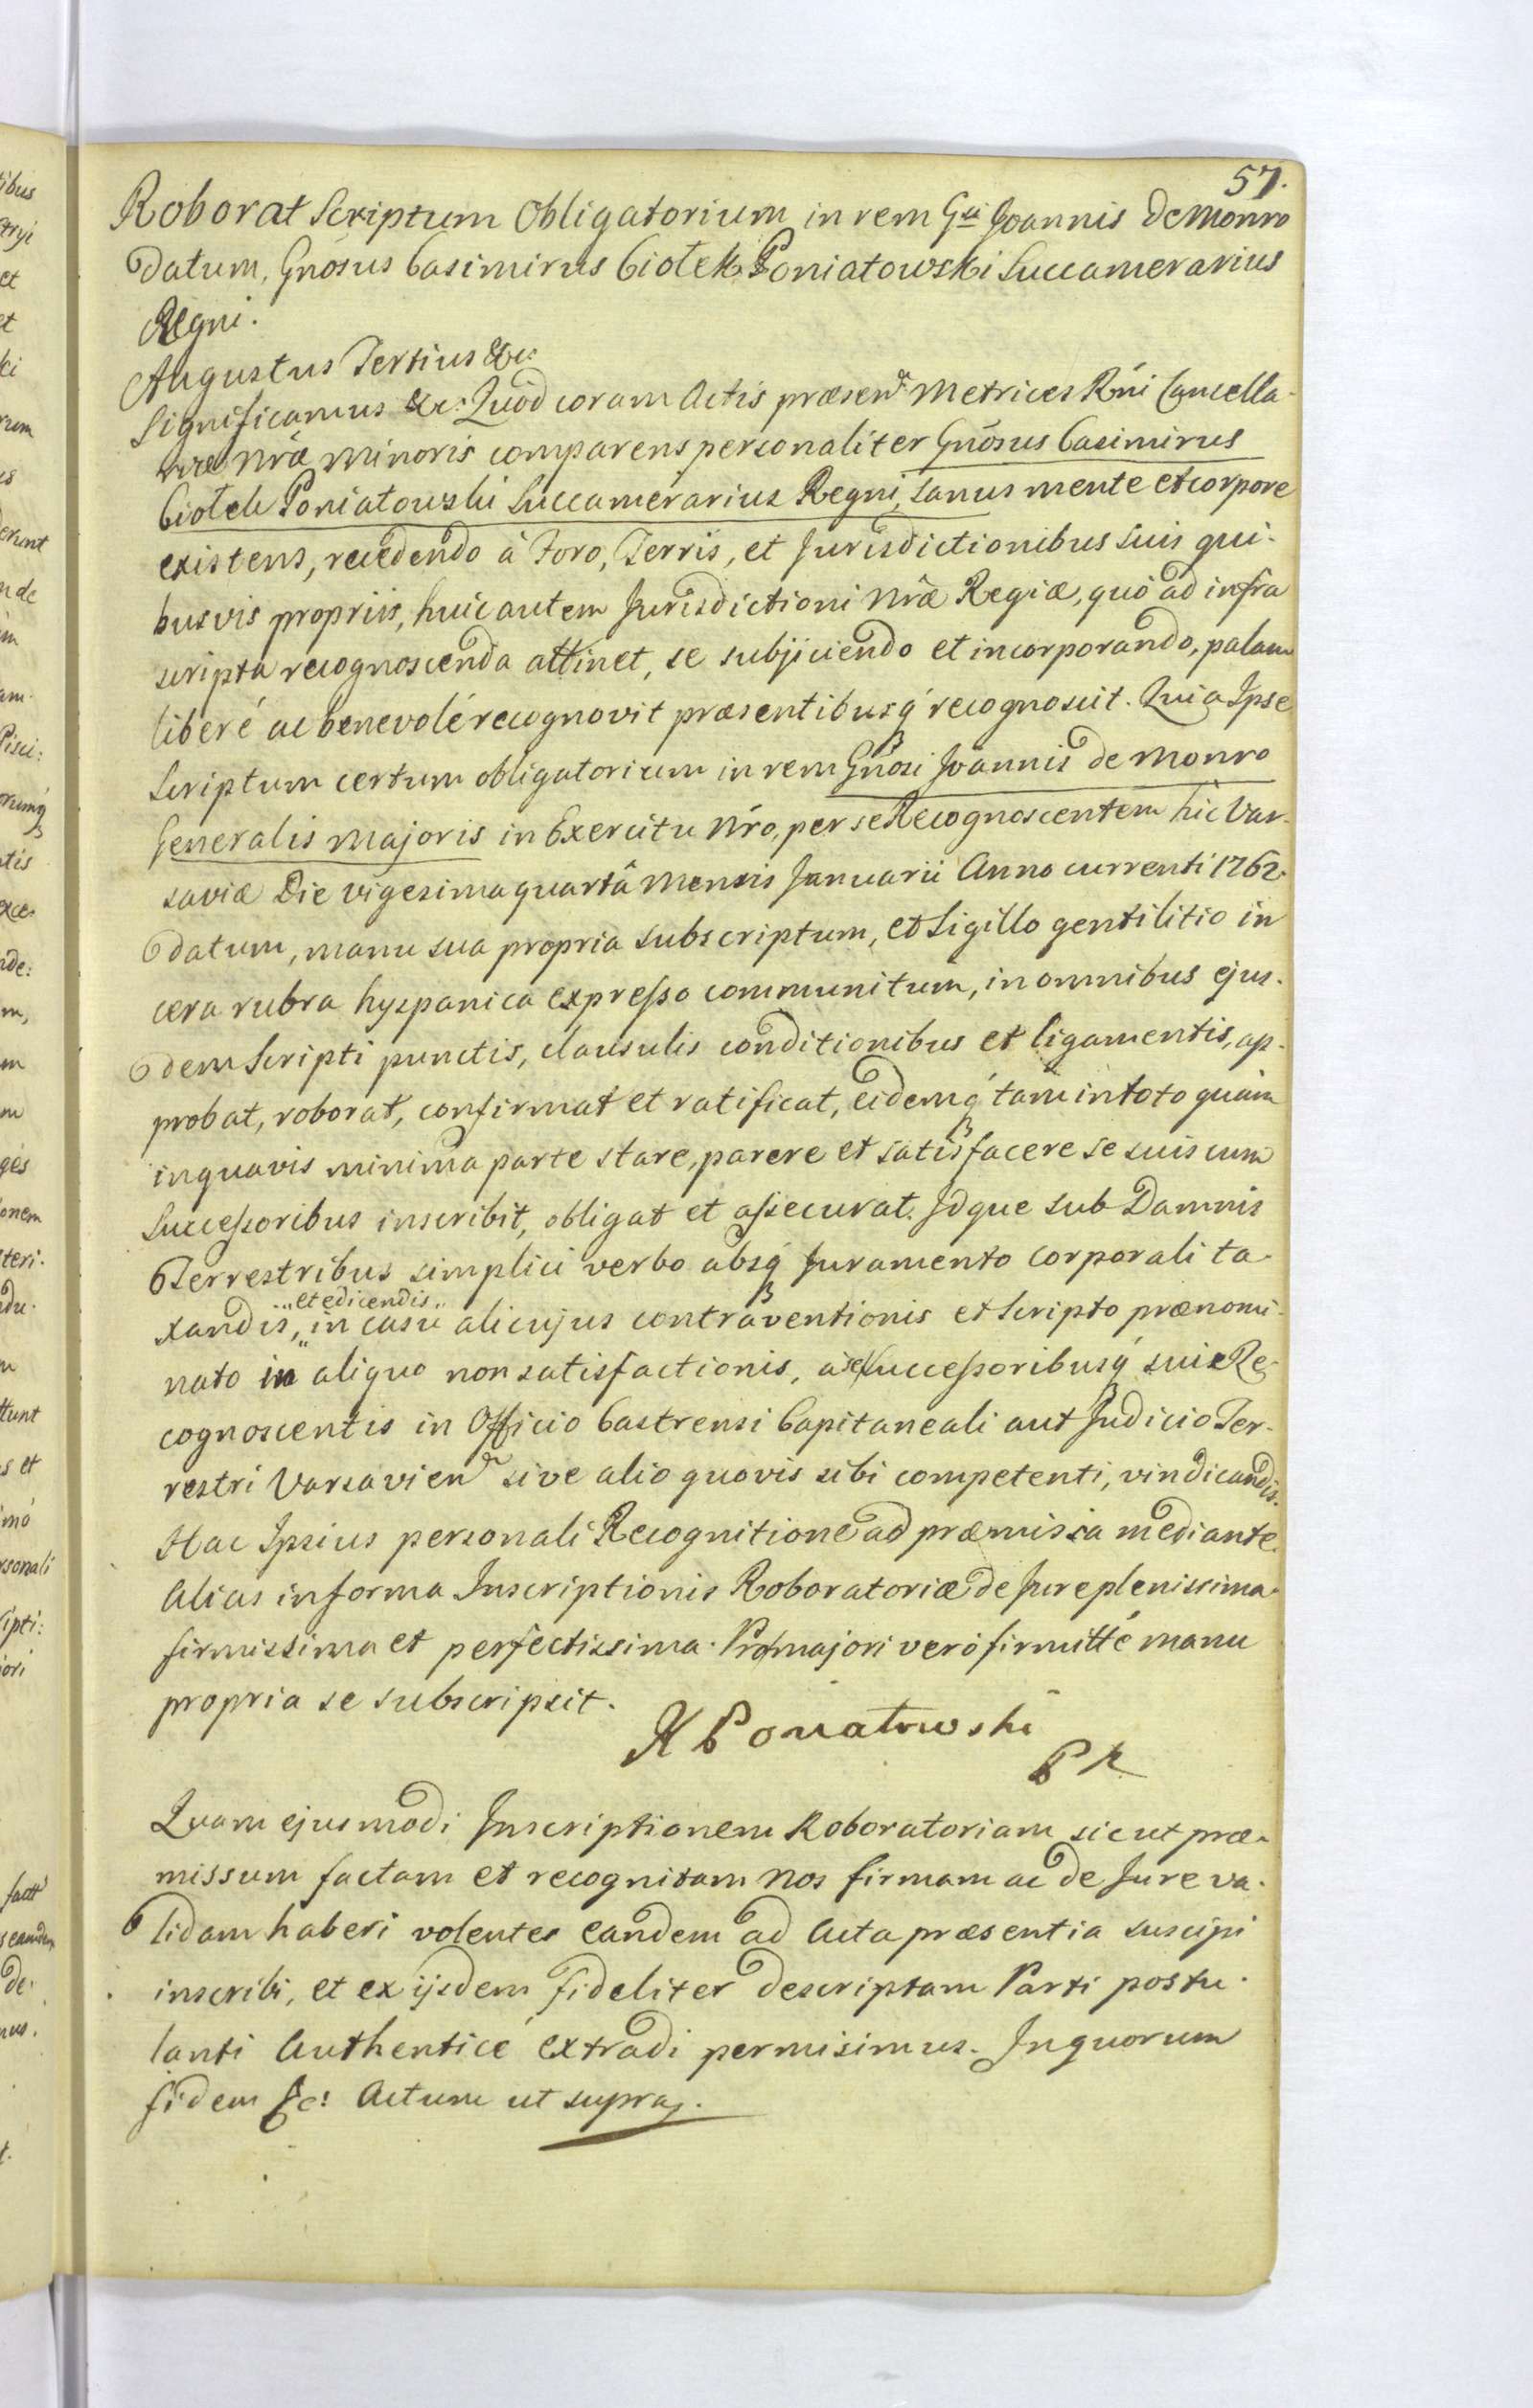 57.
Roborat Scriptum Obligatorium in rem Gsi Joannis de Monro
datum, Gnosus Casimirus Ciołek Poniatowski Succamerarius
Regni.
Augustus Tertius &c:
Significamus &c: Quod coram Actis præsen. Metrices Rni Cancella-
riæ Nræ Minoris comparens personaliter Gnosus Casimirus
Ciołek Poniatowski Succamerarius Regni, sanus mente et corpore
existens, recedendo à Foro, Terris, et Jurisdictionibus suis qui-
busvis propriis, huic autem Jurisdictioni Nræ Regiæ, quò ad infra
scripta recognoscenda attinet, se subjiciendo et incorporando, palam
liberé ac benevolé recognovit præsentibusq́ recognoscit. Quia Ipse
Scriptum certum obligatorium in rem Gnosi Joannis de Monro
Generalis Majoris in Exercitu Nro, per se Recognoscentem hic Var-
saviæ Die vigesima quartâ Mensis Januarii Anno currenti 1762.
datum, manu sua propria subscriptum, et Sigillo gentilitio in
cera rubra hyspanica expresso communitum, in omnibus ejus-
dem Scripti punctis, clausulis conditionibus et ligamentis, ap-
probat, roborat, confirmat et ratificat, eidemq́ tam in toto quàm
in quavis minima parte stare, parere et satisfacere se suis cum
Successoribus inscribit, obligat et assecurat. Idque sub Damnis
Terrestribus simplici verbo absq́ Juramento corporali ta-
„et edicendis„
xandis, in casu alicujus contraventionis et Scripto prænomi-
nato in aliquo non satisfactionis, à se Successoribusq́ suis Re-
cognoscentis in Officio Castrensi Capitaneali aut Judicio Ter-
restri Varsavien. sive alio quovis sibi competenti, vindicandis.
Hac Ipsius personali Recognitione ad præmissa mediante.
Alias in forma Inscriptionis Roboratoriæ de Jure plenissima
firmissima et perfectissima. Pro majori verò firmitté manu
propria se subscripsit.
K Poniatowski
PK
Quam ejusmodi Inscriptionem Roboratoriam sicut præ-
missum factam et recognitam Nos firmam ac de Jure va-
lidam haberi volentes eandem ad Acta præsentia suscipi
inscribi, et ex ijsdem fideliter descriptam Parti postu-
lanti Authenticé extradi permisimus. In quorum
fidem &c: Actum ut supra.